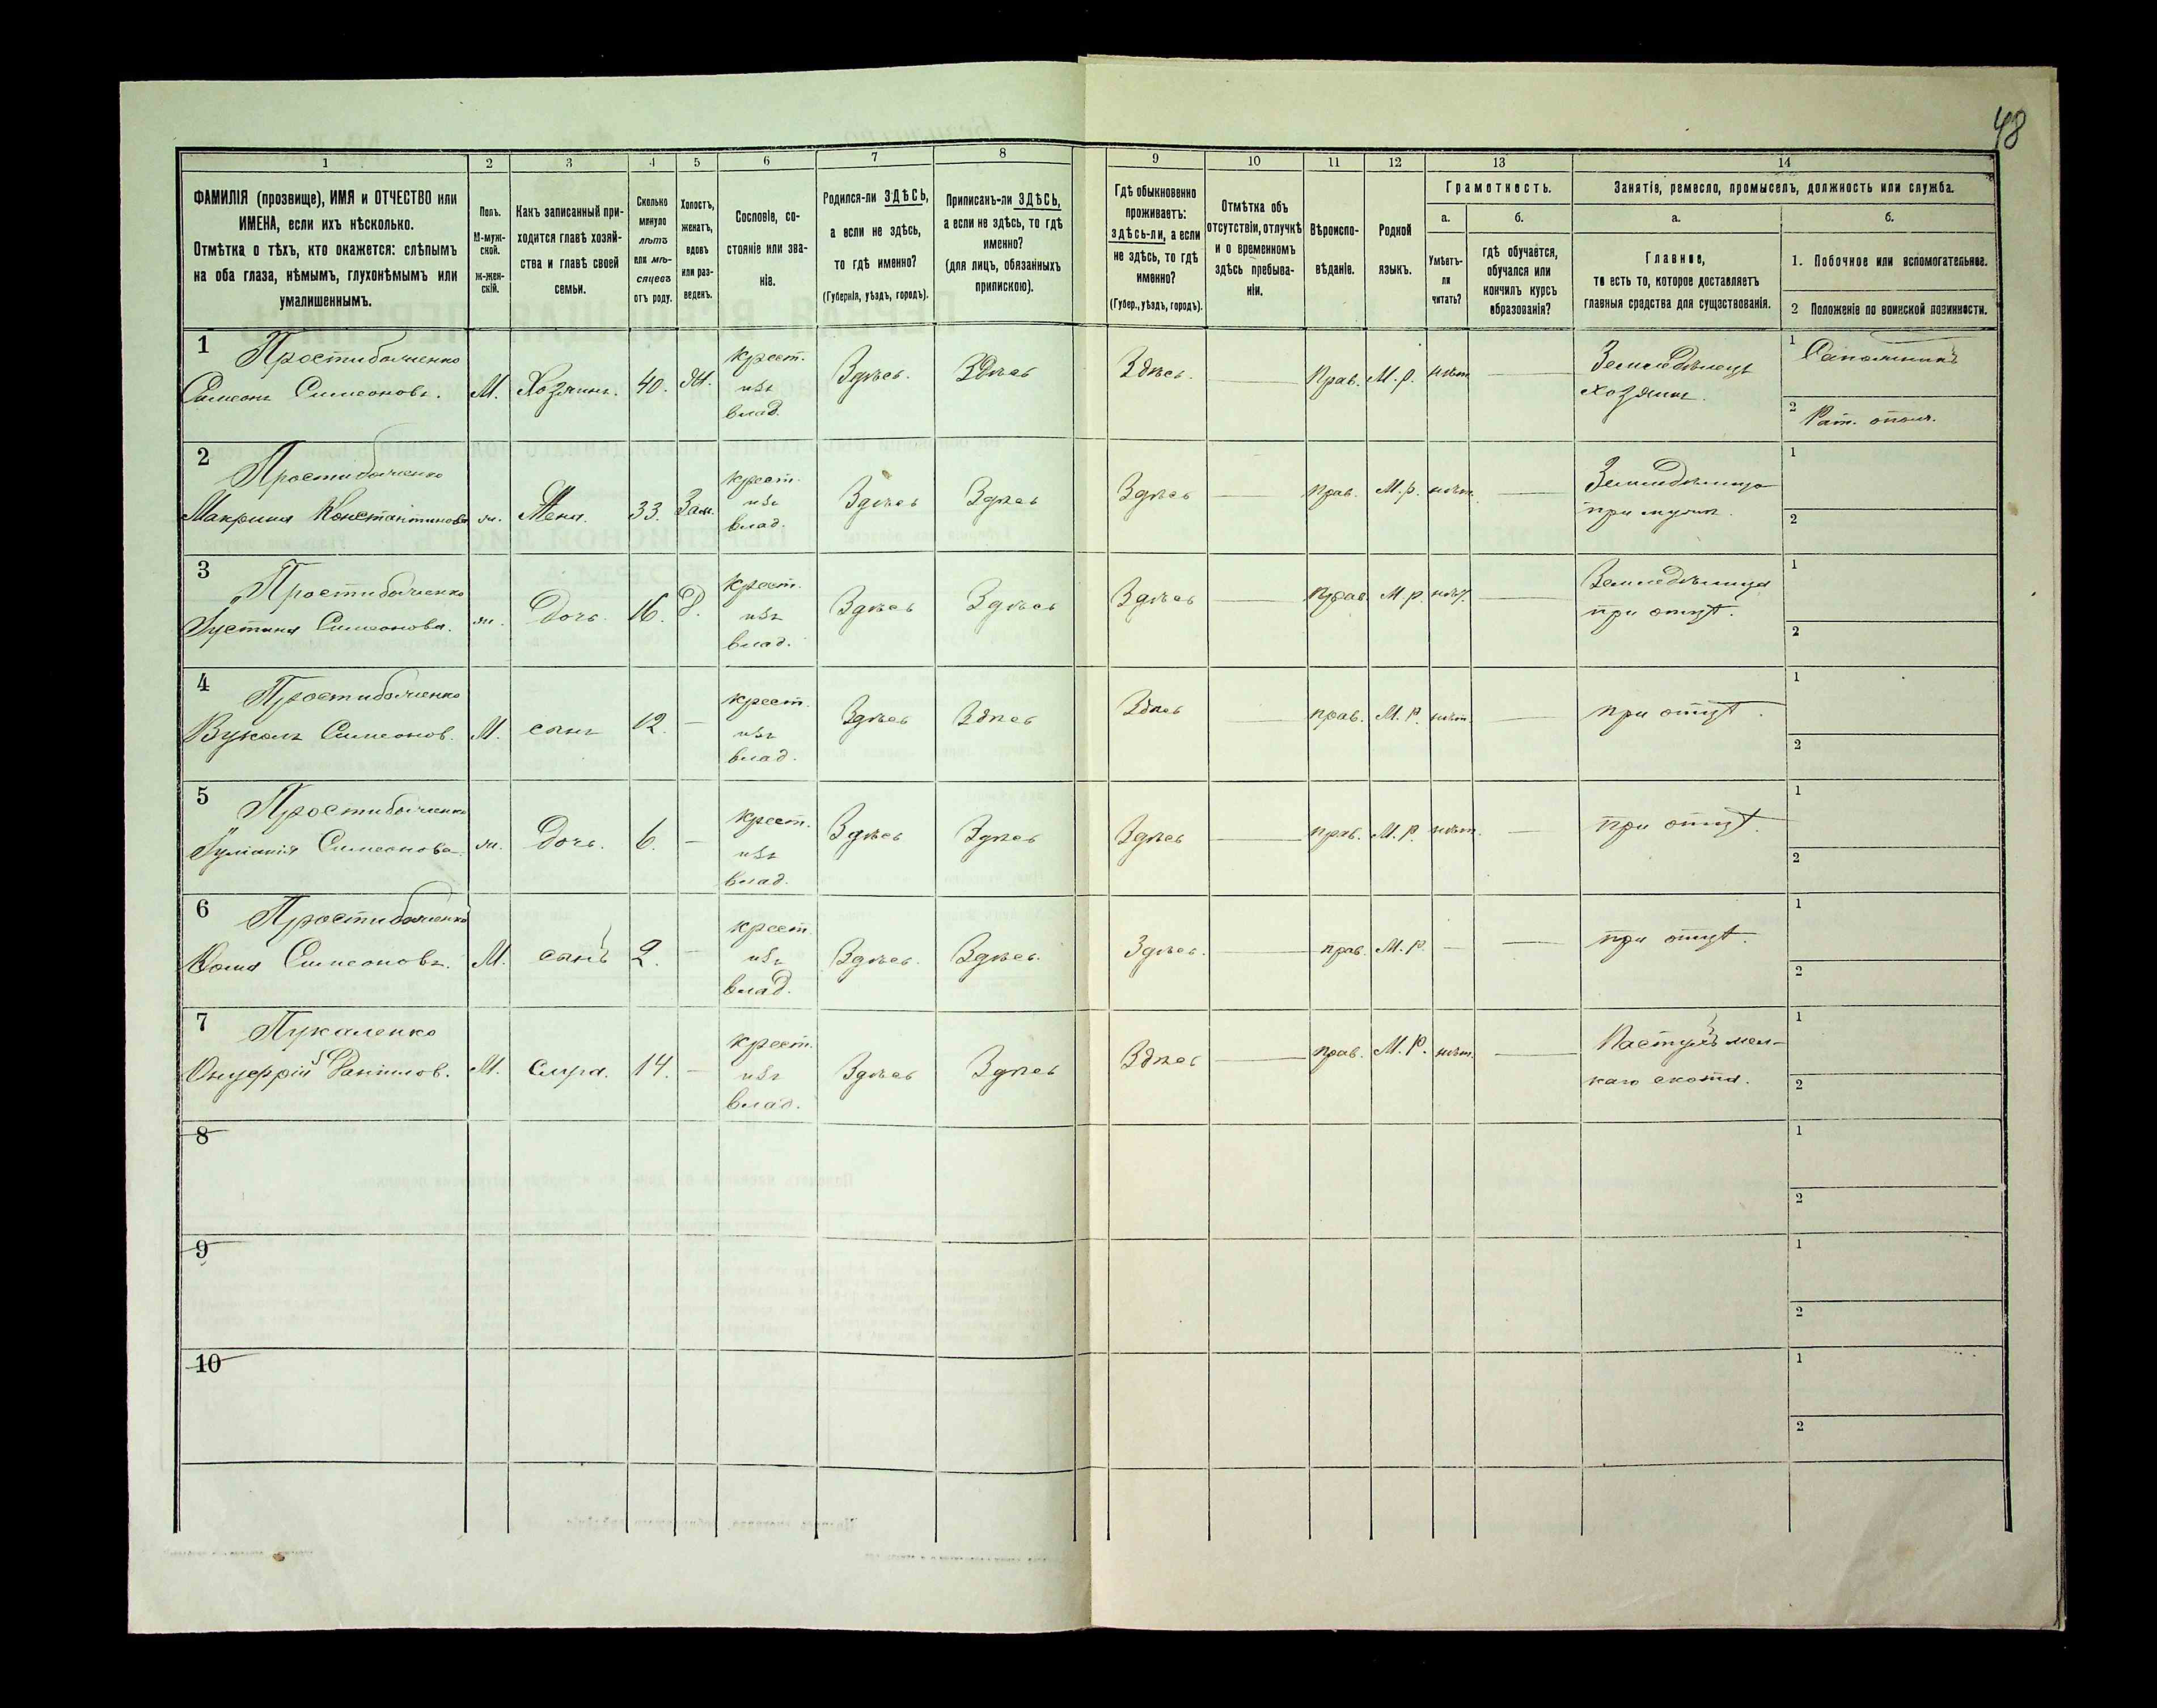 48
1 2 3 4 5 6 7 8 9 10 11 12 13 14
ФАМИЛІЯ (прозвище), ИМЯ и ОТЧЕСТВО или
ИМЕНА, если ихъ нѣсколько.
Отмѣтка о тѣхъ, кто окажется: слѣпымъ
на оба глаза, нѣмымъ, глухонѣмымъ или
умалишеннымъ.
Полъ.
М-муж-
ской.
ж-жен-
скій.
Какъ записанный при-
ходится главѣ хозяй-
ства и главѣ своей
семьи.
Сколько
минуло
лѣтъ
или мѣ-
сяцевъ
отъ роду.
Холостъ,
женатъ,
вдовъ
или раз-
веденъ.
Сословіе, со-
стояніе или зва-
ніе.
Родился-ли ЗДѢСЬ,
а если не здѣсь,
то гдѣ именно?
(Губернія, уѣздъ, городъ).
Приписанъ-ли ЗДѢСЬ,
а если не здѣсь, то гдѣ
именно?
(для лицъ, обязанныхъ
припискою).
Гдѣ обыкновенно
проживаетъ:
здѣсь-ли, а если
не здѣсь, то гдѣ
именно?
(Губер., уѣздъ, городъ).
Отмѣтка объ
отсутствіи, отлучкѣ
и о временномъ
здѣсь пребыва-
ніи.
Вѣроиспо-
вѣданіе.
Родной
языкъ.
Грамотность.
а.
Умѣетъ-
ли
читать?
б.
гдѣ обучается,
обучался или
кончилъ курсъ
образованія?
Занятіе, ремесло, промыселъ, должность или служба.
а.
Главное,
то есть то, которое доставляетъ
главныя средства для существованія.
б.
1. Побочное или вспомогательное.
2 Положеніе по воинской повинности.
1 Простиболченко
Симеонъ Симеоновъ. М. Хозяинъ. 40. Ж. крест. изъ влад. Здѣсь. Здѣсь Здѣсь. Прав. М.р. нѣт Земледѣлецъ хозяинъ. 1 Сапожникъ
2 Рат. опол.
2 Простиболченко
Макрина Константинова ж. Жена. 33. Зам. крест. изъ влад. Здѣсь Здѣсь Здѣсь прав. М.р. нѣт. Земледѣлица при мужѣ. 1
2
3 Простиболченко
Іустина Симеонова. ж. Дочь. 16. Д. крест. изъ влад. Здѣсь Здѣсь Здѣсь Прав. М.р. нѣт. Земледѣлица при отцѣ. 1
2
4 Простиболченко
Вуколъ Симеонов. М. сынъ 12. крест. изъ влад. Здѣсь Здѣсь Здѣсь прав. М.р. нѣт. при отцѣ. 1
2
5 Простиболченко
Іуліанія Симеонова. ж. Дочь. 6. крест. изъ влад. Здѣсь Здѣсь Здѣсь прав. М.р. нѣт. при отцѣ. 1
2
6 Простиболченко
Симеоновъ. М. сынъ 2. крест. изъ влад. Здѣсь. Здѣсь. Здѣсь. прав. М.р. при отцѣ. 1
2
7 Пукаленко
Онуфрій Даніилов. М. 14. крест. изъ влад. Здѣсь Здѣсь Здѣсь прав. М.р. нѣт. Пастухъ мел-
каго скота. 1
2
8 1
2
9 1
2
10 1
2